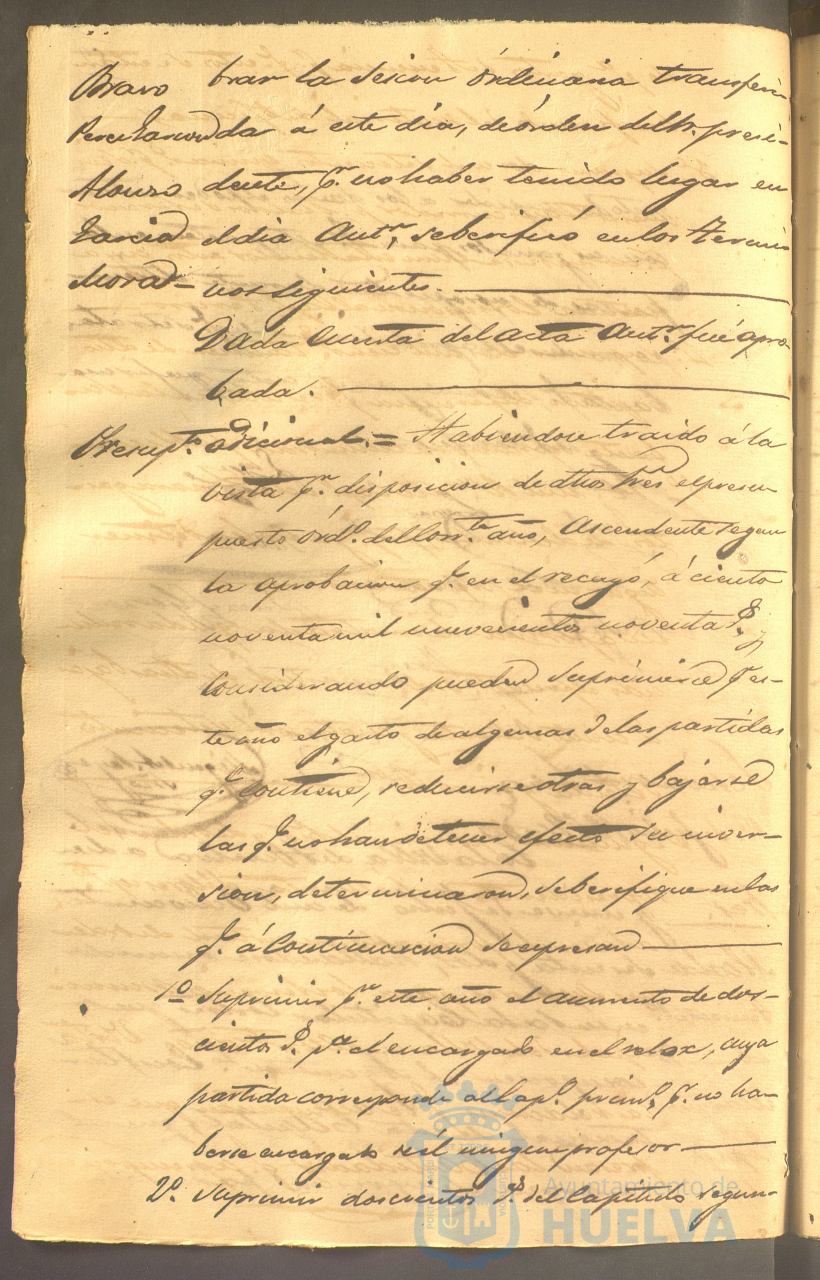 Bravo brar la sesion órdinaria transferi-
Perez Garcia da á este dia, de órden del Sr. presi-
Alonso dente, pr. no haber tenido lugar en
Garcia el dia Antr., se berificó en los termi
Mora - nos siguientes.
Dada cuenta del acta Antr. fué apro-
bada.
Presupto. adicional. = Habiendose traido á la
vista pr. disposicion de dhos Sres el presu-
puesto órdo. del corrte. año, Ascendente segun
la aprobacion qe. en el recayó, á ciento
noventa mil nuevecientos noventa rs. y
Considerando pueden suprimirse pr es-
te año el gasto de algunas de las partidas
qe. contiene, reducirse otras y bajarse
las qe. no han de tener efecto su inver-
sion, determinaron, se berifique en las
qe. á continuacion se expresan
1º Suprimir pr. este año el aumento de dos-
cientos rs. pa. el encargado en el relox, cuya
partida corresponde al capo. primo. pr. no ha-
berse encargado de él ningun profesor
2º. Suprimir doscientos rs. del Capitulo segun-
Ayuntamiento de
HUELVA